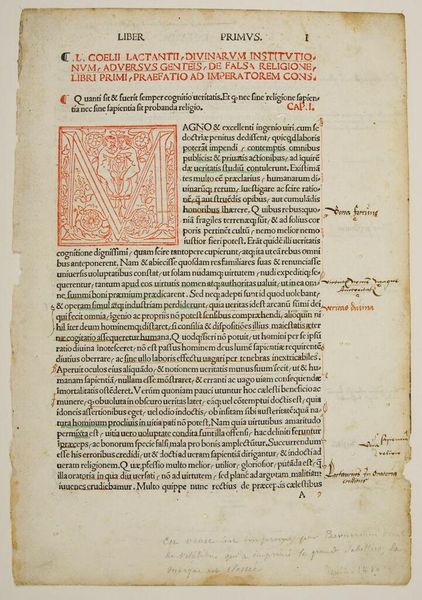 LIBER PRIMVS. I
L. COELII LACTANTII, DIVINARVM INSTITVTIO-
NVM, ADVERSVS GENTEIS, DE FALSA RELIGIONE,
LIBRI PRIMI, PRAEFATIO AD IMPERATOREM CONS.
Quanti sit & fuerit semper cognitio ueritatis. Et q nec sine religione sapien-
tia nec sine sapientia sit probanda religio. CAP. I.
MAGNO & excellenti ingenio uiri, cum se
doctrinæ penitus dedissent, quicqd laboris
poterat impendi, contemptis omnibus
publicis & priuatis actionibus, ad iquirē
dæ ueritatis studiū contulerunt. Existimā
tes multo eē præclarius, humanarum di-
uinarūq; rerum, iuestigare ac scire ratio
nē, q̄ aut struēdis opibus, aut cumuladis
honoribus Ihærere. Quibus rebus, quo-
niā fragiles terrenæq; sūt, & ad solius cor
poris pertinēt cultū, nemo melior nemo
iustior fieri potest. Erāt quidē illi ueritatis
cognitione dignissimi, quam scire tantopere cupierunt, atq; ita ut eā rebus omni
bus anteponerent. Nam & abiecisse quosdam res familiares suas & renunciasse
uniuersis uoluptatibus constat, ut solam nudamq; uirtutem, nudi expeditiq; se-
querentur, tantum apud eos uirtutis nomen atq; authoritas ualuit, ut in ea om-
ne summi boni præmium prædicarent. Sed neq; adepti sunt id quod uolebant,
& operam simul atq; industriam perdiderunt, quia ueritas idest arcanū sūmi dei
qui fecit omnia, igenio ac propriis nō potest sensibus compræhendi, alioquin ni
hil iter deum hominemq; distaret, si consilia & dispositiões illius maiestatis æter
næ cogitatio assequeretur humana. Quod quoniam fieri nō potuit, ut homini per se ipsū
ratio diuina inotesceret, nō est passus hominem deus lumē sapientiæ requirentē
diutius oberrare, ac sine ullo laboris effectu uagari per tenebras inextricabiles.
Aperuit oculos eius aliquādo, & notionem ueritatis munus suum fecit, ut & hu-
manam sapientiā, nullam esse mōstraret, & erranti ac uago uiam consequendæ
imortalitatis ostēderet. Verum quoniam pauci utuntur hoc cælesti beneficio ac
munere, q obuoluta in obscuro ueritas latet, ea
idoneis assertionibus eget, uel odio indoctis, ob insitam sibi austeritatē, quā na-
tura hominum procliuis in uitia pati nō potest. Nam quia uirtutibus amaritudo
permixta est, uitia uero uoluptate condita sunt, illa offensi, hac deliniti feruntur
ipræceps, ac bonorum specie falsi, mala pro bonis amplectūtur. Succurrendum
esse his erroribus credidi, ut & docti ad ueram sapientiā dirigantur, & indocti ad
ueram religionem. Quæ pfessio multo melior, utilior, gloriosior, putāda est, q̄
illa oratoria in qua diu uersati, nō ad uirtutem, sed plane ad argutam malitiam
iuuenes erudiebamur. Multo quippe nunc rectius de præceptis cælestibus
A
Bona fortunæ
veritas diuina